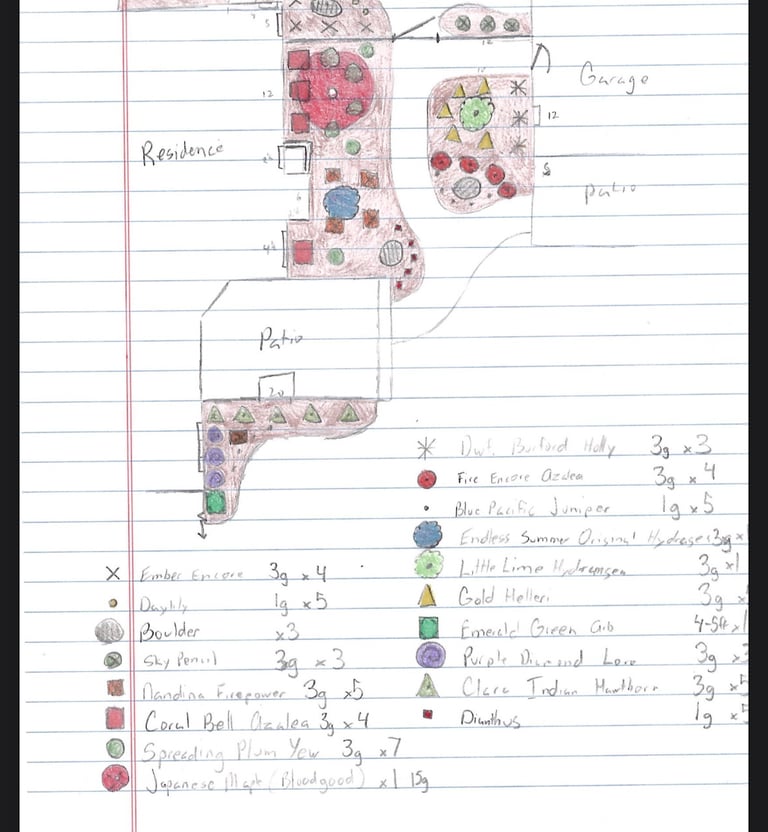 5
12
Garage
12
Residence
5
patio
6
Patio
20
Dwf. Burford Holly 3g x3
Fire Encore Azalea 3g x4
Blue Pacific Juniper 1g x5
Endless Summer Original 3g x
Ember Encore 3g x4
Little Lime Hydrangea 3g x1
Daylily 1g x5
Gold Helleri 3g x
Boulder x3
Emerald Green 4-5ft x1
Sky Pencil 3g x3
Purple Diamond 3g x3
Nandina Firepower 3g x5
Clara Indian Hawthorn 3g x5
Coral Bell Azalea 3g x4
Dianthus 1g x5
Spreading Plum Yew 3g x7
Japanese Maple (Bloodgood) x1 15g